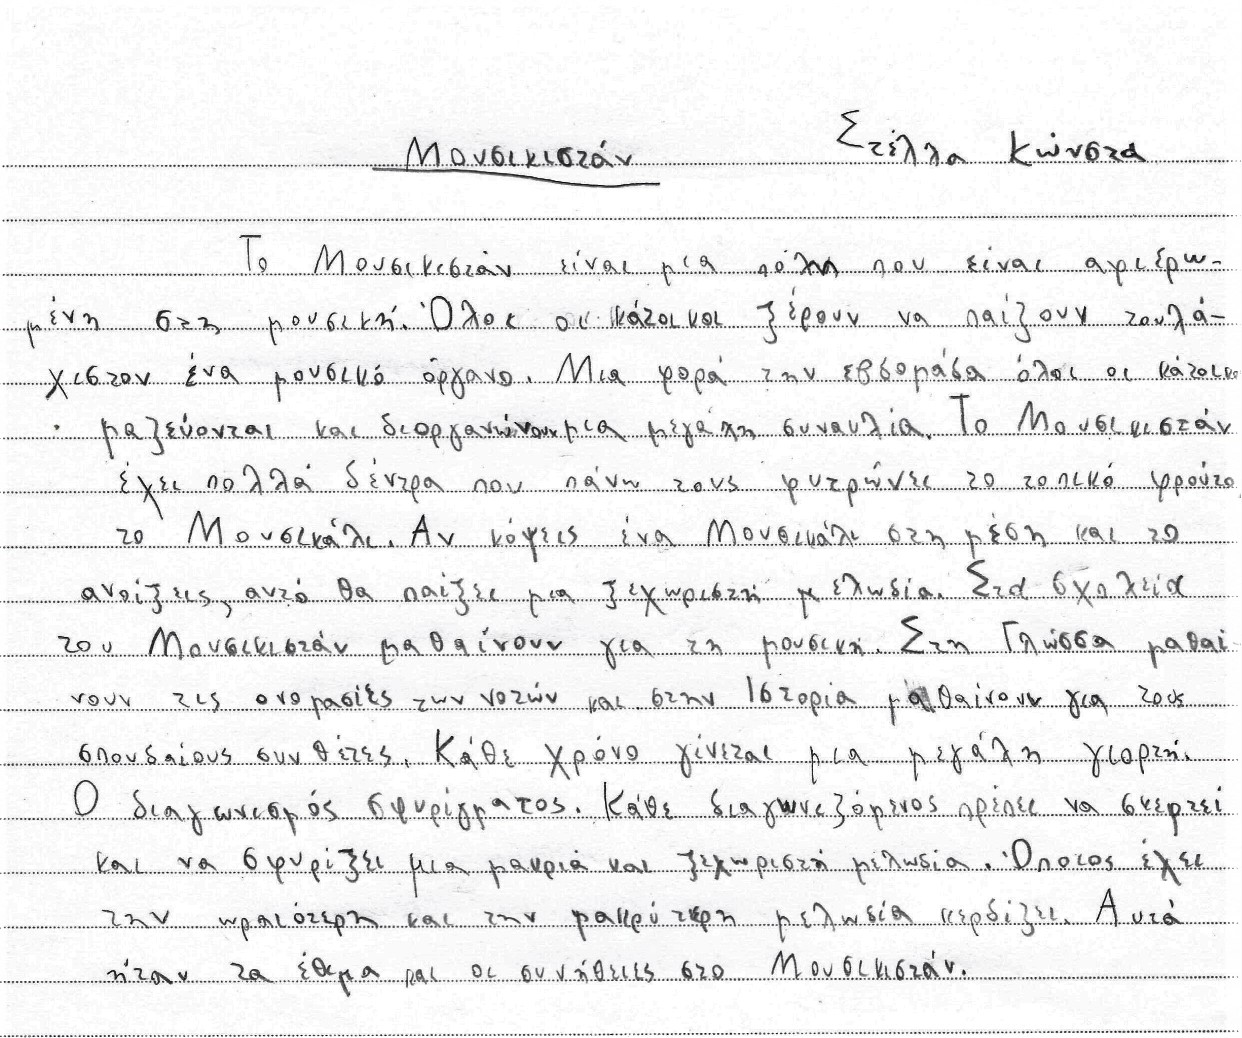 Μουσικιστάν Στέλλα Κώνστα
Το Μουσικιστάν είναι μια πόλη που είναι αφιερω-
μένη στη μουσική. Όλοι οι κάτοικοι ξέρουν να παίζουν τουλά-
χιστον ένα μουσικό όργανο. Μια φορά την εβδομάδα όλοι οι κάτοικοι
μαζεύονται και διοργανώνουν μια μεγάλη συναυλία. Το Μουσικιστάν
έχει πολλά δέντρα που πάνω τους φυτρώνει το τοπικό φρούτο,
το Μουσικάλι. Αν κόψεις ένα Μουσικάλι στη μέση και το
ανοίξεις, αυτό θα παίξει μια ξεχωριστή μελωδία. Στα σχολεία
του Μουσικιστάν μαθαίνουν για τη μουσική. Στη Γλώσσα μαθαί-
νουν τις ονομασίες των νοτών και στην Ιστορία μαθαίνουν για τους
σπουδαίους συνθέτες. Κάθε χρόνο γίνεται μια μεγάλη γιορτή.
Ο διαγωνισμός σφυρίγματος. Κάθε διαγωνιζόμενος πρέπει να σκεφτεί
και να σφυρίξει μια μακριά και ξεχωριστή μελωδία. Όποιος έχει
την ωραιότερη και την μακρύτερη μελωδία κερδίζει. Αυτά
ήταν τα έθιμα και οι συνήθειες στο Μουσικιστάν.